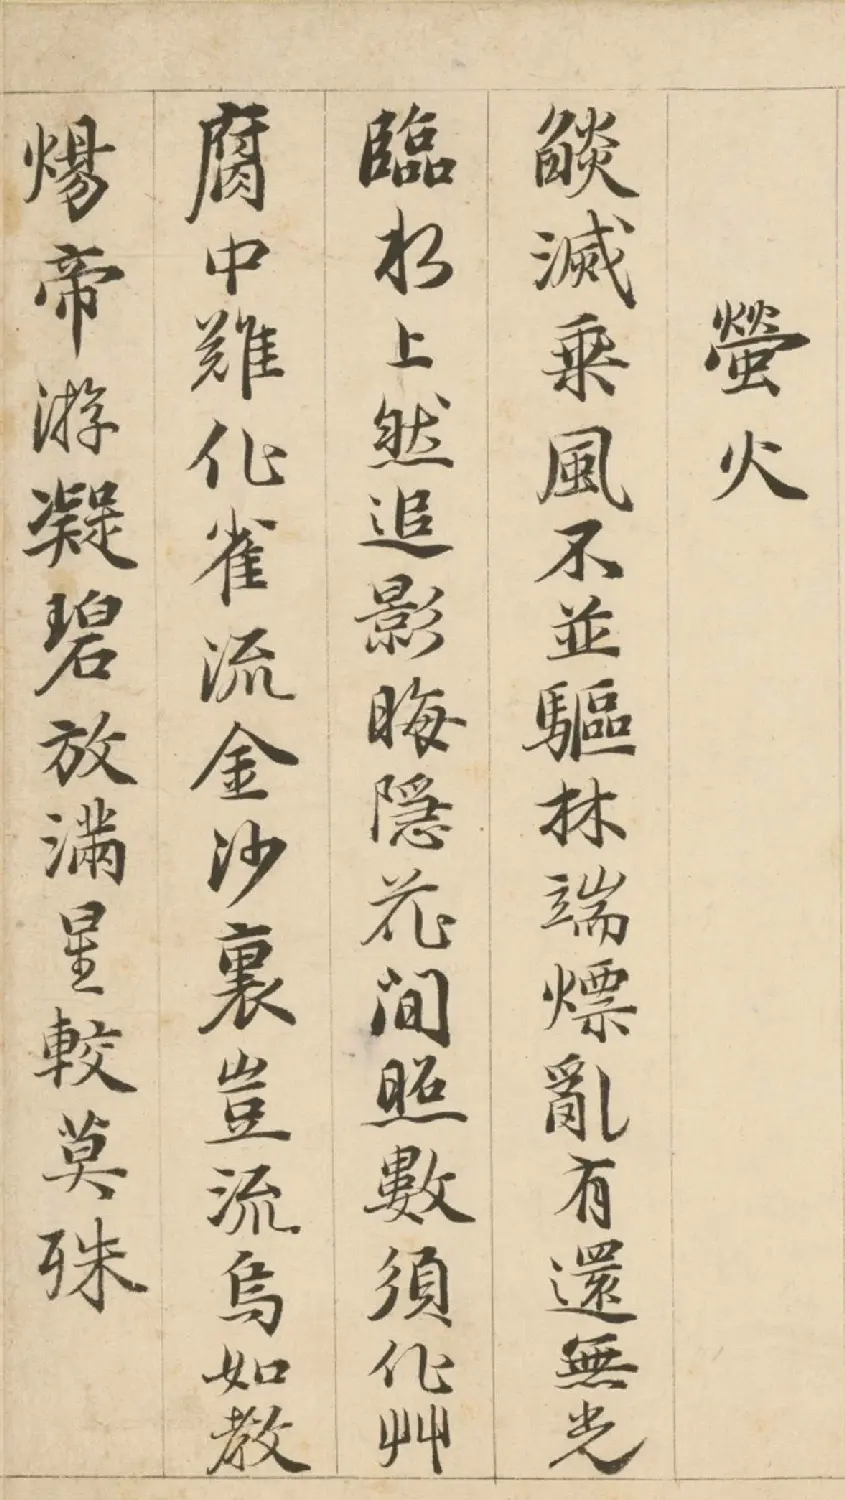 螢火
燄滅乗風不並驅林端熛亂有還無光
臨水上然追影晦隱花間照數須化艸
腐中難化雀流金沙裏豈流烏如教
煬帝游凝碧放滿星較莫殊